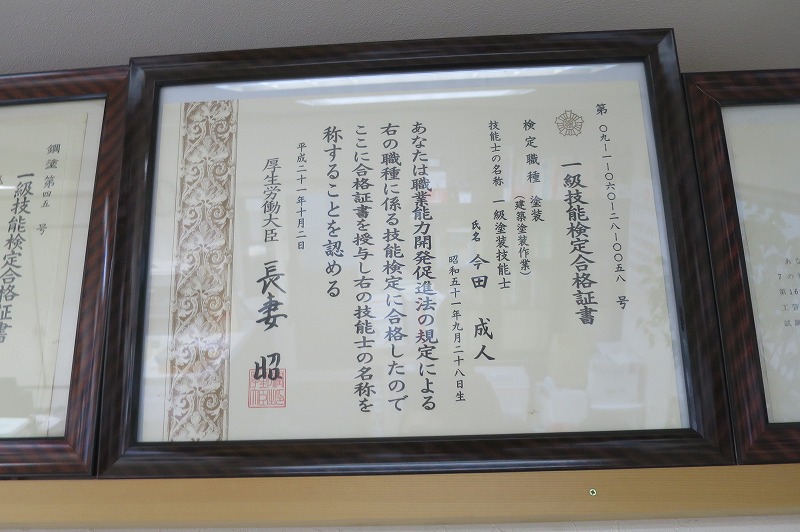 第〇九-一-〇六〇-二八-〇〇五八号
一級技能検定合格証書
検定職種 塗装
(建築塗装作業)
技能士の名称 一級塗装技能士
氏名 今田 成人
昭和五十一年九月二十八日生
あなたは職業能力開発促進法の規定による
右の職種に係る技能検定に合格したので
ここに合格証書を授与し右の技能士の名称を
称することを認める
平成二十一年十月二日
厚生労働大臣 長妻 昭
鋼塗 第四五 号
一級技能検定合格証書
あな
7の
第16
工管
試験